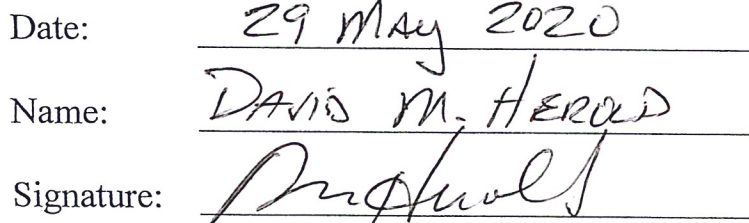 Date: 29 May 2020
Name: DAVID M. HEROLD
Signature: DMHerold